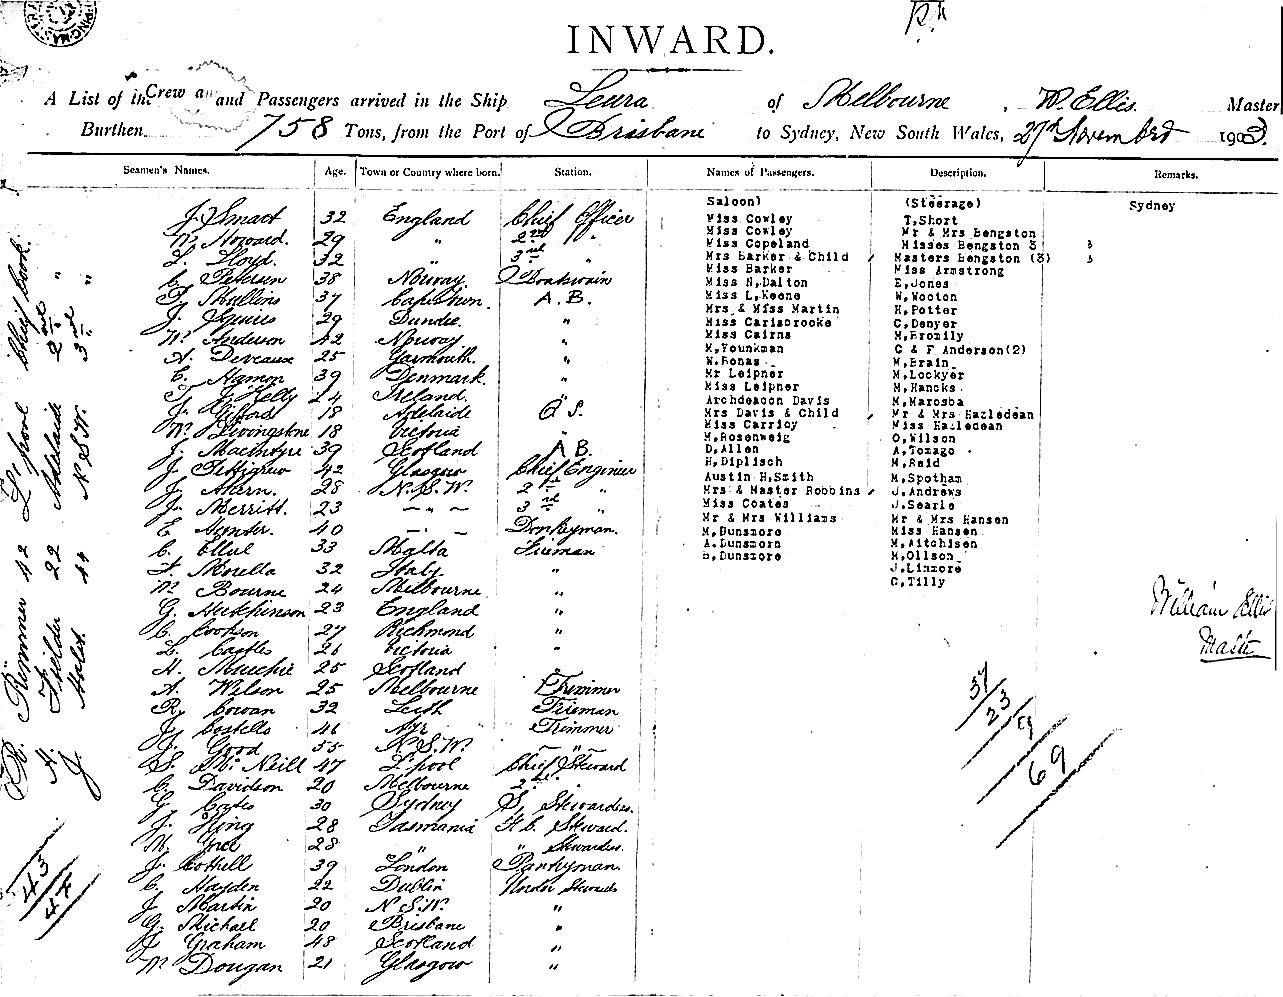 INWARD.
A List of the Crew and Passengers arrived in the Ship Leura of Melbourne, W. Ellis Master
Burthen 758 Tons, from the Port of Brisbane to Sydney, New South Wales, 27th Novembr 1903.
Seamen's Names. Age. Town or Country where born. Station. Names of Passengers. Description. Remarks.
J. Smart 32 England Chief Officer
W. Howard. 29 " 2nd "
L. Lloyd. 32 " 3rd "
C. Petersen 38 Norway. Boatswain
T. Mullins 37 Capetown. A.B.
J. Squires 29 Dundee. "
W. Anderson 42 Norway "
A. Deveaux 25 Yarmouth. "
C. Hamon 39 Denmark. "
T. J. Kelly 24 Ireland. "
J. Gifford 18 Adelaide O.S.
W. Livingstone 18 Victoria "
J. MacIntyre 39 Scotland A.B.
J. Pettigrew 42 Glasgow Chief Engineer
J. Ahern. 28 N.S.W. 2nd "
J. Merritt. 23 — " — 3rd "
E. Hunter. 40 — " — Donkeyman.
C. Ellul 33 Malta Fireman
F. Morella 32 Italy. "
W. Bourne 24 Melbourne "
G. Hutchinson 23 England "
C. Cookson 27 Richmond "
L. Castles 26 Victoria "
A. Murchie 25 Scotland "
A. Wilson 25 Melbourne Trimmer
R. Cowan 32 Leith Fireman
J. Costello 46 Ayr Trimmer
J. Good 55 N.S.W. — " —
S. McNeill 47 L'pool Chief Steward
C. Davidson 20 Melbourne 2nd "
G. Cates 30 Sydney S. Stewardess.
J. King 28 Tasmania F.C. Steward.
28 " " Stewardess.
J. Cottrell 39 London Pantryman.
C. Hayden 22 Dublin Under Steward
J. Martin 20 N.S.W. "
G. Michael 20 Brisbane "
J. Graham 48 Scotland "
W. Dougan 21 Glasgow "
Saloon)
Miss Cowley
Miss Cowley
Miss Copeland
Mrs Barker & Child
Miss Barker
Miss N. Dalton
Miss L. Keene
Mrs & Miss Martin
Miss Carisbrooke
Miss Cairns
M. Younkman
W. Ronas
Mr Leipner
Miss Leipner
Archdeacon Davis
Mrs Davis & Child
Miss Carricy
M. Rosenweig
D. Allen
H. Diplisch
Austin H. Smith
Mrs & Master Robbins
Miss Coates
Mr & Mrs Williams
M. Dunsmore
A. Dunsmore
B. Dunsmore
(Steerage)
T. Short
Mr & Mrs Bengston
Misses Bengston 3
Masters Bengston (3)
Miss Armstrong
E. Jones
W. Wooton
H. Potter
C. Denyer
M. Bromily
C & F Anderson(2)
M. Brain
M. Lockyer
M. Hancks
M. Marosba
Mr & Mrs Hazledean
Miss Hazledean
O. Wilson
A. Tozago
M. Reid
M. Spotham
J. Andrews
J. Searle
Mr & Mrs Hansen
Miss Hansen
M. Aitchisen
M. Ollson
J. Linmore
C. Tilly
Sydney
3
3
William Ellis
Master
37
23
9
69
R. Rimmer 42 L'pool Chief Cook.
A. Fielder 22 Adelaide 2nd "
J. Hales. 44 N.S.W. 3rd "
43